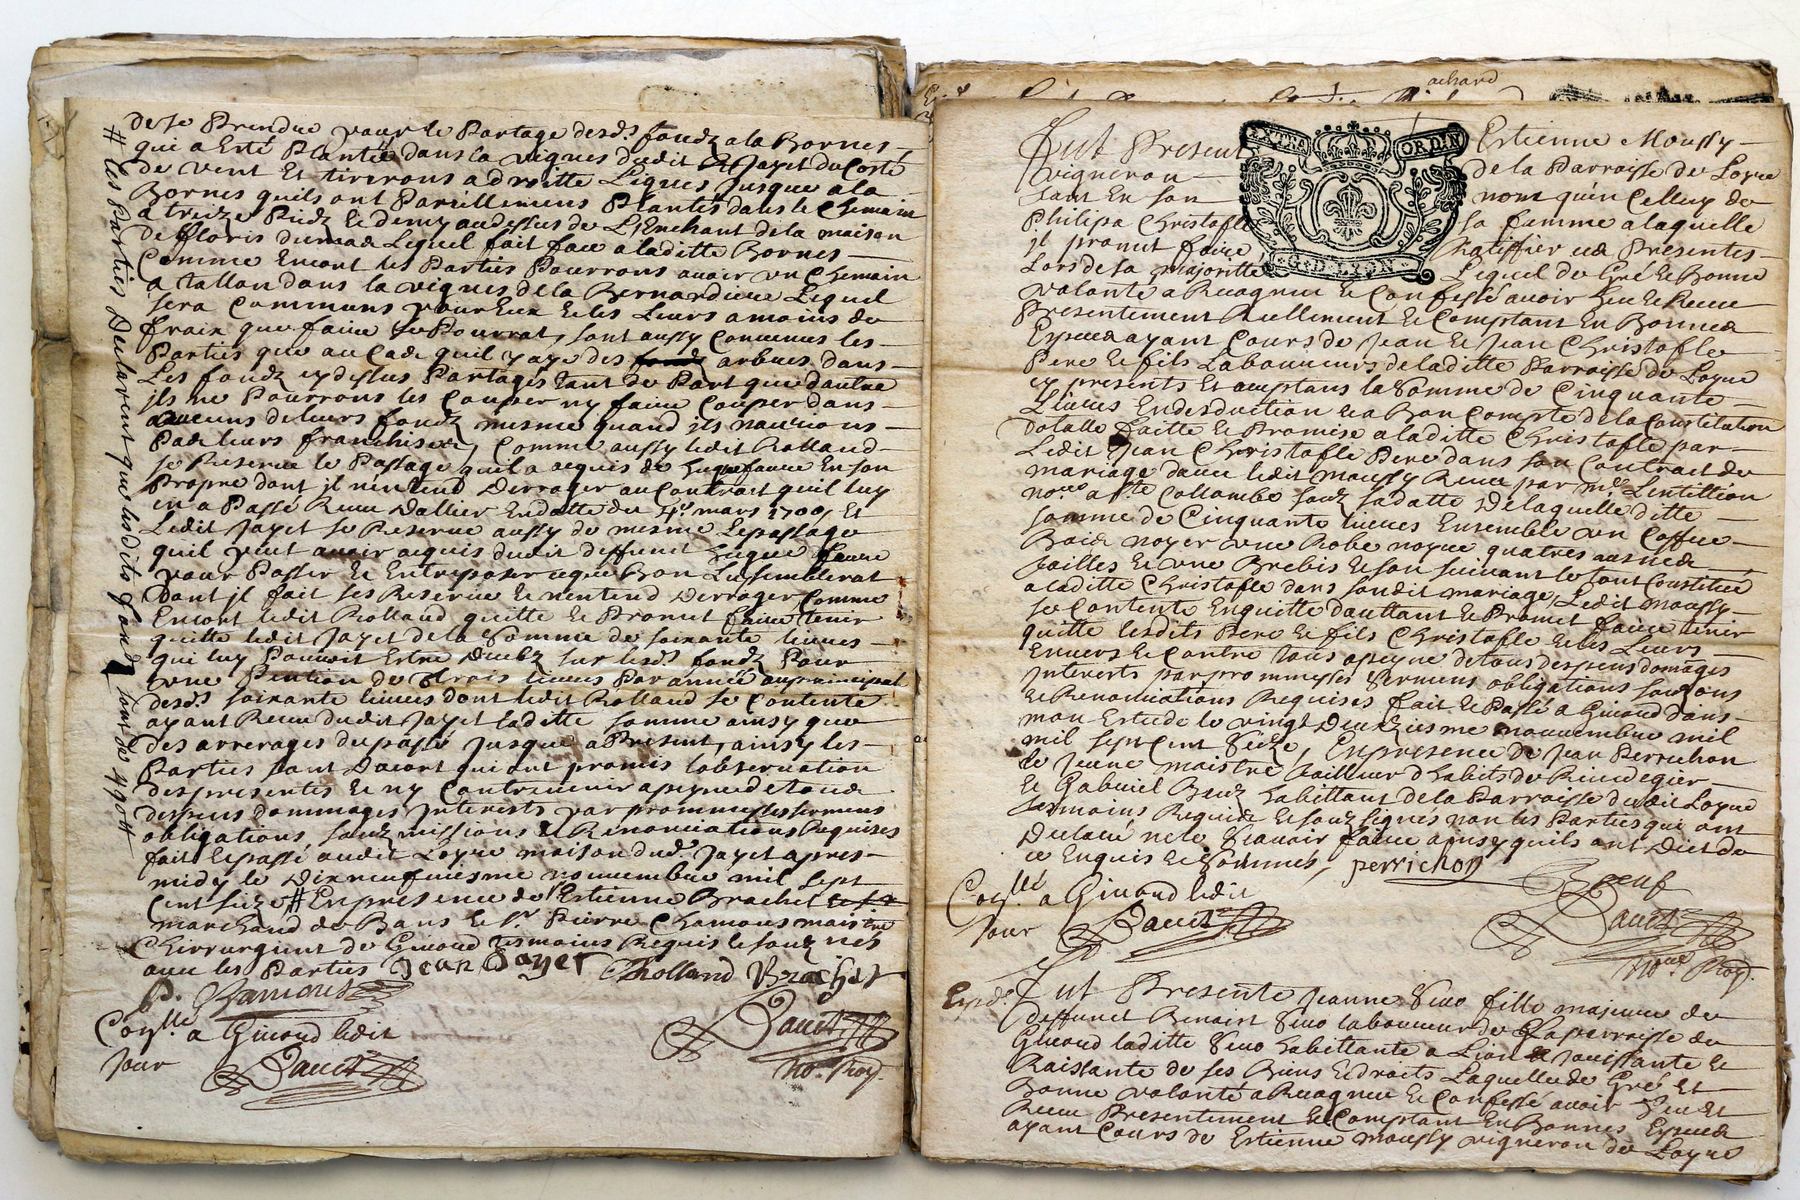 de se Prendre pour le Partage desd.s fondz a la Bornes
qui a Esté Plantée dans la vignes dudit Jayet du Costé
de vent Et tirerons a droitte Lignes Jusque a la
Bornes quils ont Pareillement Plantés dans le Chemain
a treize Piedz & demy audessus de L'Enchant de la maison
de floris dumas Lequel fait face a laditte Bornes
Comme Encort les Parties Pourrons avoir un Chemain
a tallon dans la vignes de la Bernardiere Lequel
sera Commun pour Eux & les Leurs a moins de
fraix que faire se Pourrat, sont aussy Convenus les
Parties que au Cas quil y aye des arbres dans
Les fondz cy dessus Partagés tant de Part que dautre
jls ne Pourrons les Couper ny faire Couper dans
aucuns de leurs fondz mesme quand jls naurions
Pas leurs franchises, Comme aussy ledit Rolland
se Reserve le Passage quil a acquis de faure En son
Propre dont jl nentend Derroger au Contrait quil luy
en a Passé Reçu Dallier En datte du mars 1700, Et
Ledit Jayet se Reserve aussy de mesme Le passage
quil peut avoir acquis dudit deffunct faure
pour Passer & Entreposer ce que Bon Lui semblerat
Dont jl fait ses Reserve & nentend Derroger, Comme
Encort ledit Rolland quitte & Promet faire tenir
quitte ledit Jayet de la Somme de soixante livres
qui luy Pouvoit Estre Deubz sur lesd.s fondz Pour
une Pention de trois livres Par année au principal
desd.s soixante livres dont ledit Rolland se Contente
ayant Receu dudit Jayet laditte somme ainsy que
des arrerages du passé Jusque a Present, ainsy les
Parties sont Dacort qui ont promis l'observation
des presentes & ny Contrevenir a peyne de tous
despens dommages Interests par prommesses sermens
obligations, soubzmissions & Renonciations Requises
fait & passé audit Loyre maison dud. Jayet apres
midy le Dixneufviesme novembre mil sept
Cent seize # En presence de Estienne Brachet
marchand de Bans & s.r Pierre Chamous maistre
Chirrurgient de Givord tesmoins Requis & soubznés
avec les Parties Jean Jayet Rolland Brachet
P. Chamous
Con.llé a Givord ledit
jour
No.re Roy.
# les Parties Declarent que lesdits fondz sont de
Fut Present Estienne Moussy
vigneron de la Parroisse de Loyre
tant En son nom quen Celluy de
Philipa Christofle sa femme a laquelle
jl promet faire Rattiffier ces Presentes
Lors de sa majoritte Lequel de Gré & Bonne
EXTRA ORDIN
G. D. LYON
volonté a Recogneu & Confessé avoir heu & Receu
Presentement Reellement & Comptant En Bonnes
Especes ayant Cours de Jean & Jean Christofle
Pere & fils Laboureurs de laditte Parroisse de Loyre
cy presents Et acceptans la Somme de Cinquante
Livres En desduction & a Bon Compte de la Constitution
dotalle faitte & Promise a laditte Christofle par
Ledit Jean Christofle Pere dans son Contrait de
mariage d'avec ledit moussy Receu par m.e Lentillion
no.re a s.te Collombe soubz sa datte De laquelle ditte
somme de Cinquante livres Ensemble un Coffre
Bois noyer une Robe noyre quatres asnées
seilles & une Brebis & son suivant le tout Constitué
a laditte Christofle dans sondit mariage, Ledit moussy
se Contente En quitte dauttant & Promet faire tenir
quitte lesdits Pere & fils Christofle & les Leurs
Envers & Contre tous a peyne de tous despens domages
Interests par prommesses Sermens obligations soubzons
& Renonciations Requises fait & Passé a Givord dans
mon Estude le vingt Deuxziesme novembre mil
mil sept Cent Seize, En presence de Jean Perrichon
le Jeune maistre tailleur d'habits de Rivedegier
& Gabriel Beuf habittant de la Parroisse dudit Loyre
tesmoins Requis & soubz signes non les Parties qui ont
Declaré ne le Scavoir faire ainsy quils ont Dict de
ce Enquis & Sommés, perrichon
Beuf
Con.llé a Givord ledit
jour
No.re Roy.
Exp.d. Fut Presente Jeanne fille majeure de
deffunct Benoist laboureur de La parroisse de
Givord laditte habittante a Lion Jouissante &
Jaissante de ses Biens & droits Laquelle de Gré Et
Bonne volonté a Recogneu & Confessé avoir heu Et
Receu Presentement & Comptant En Bonnes Especes
ayant Cours de Estienne moussy vigneron de Loyre
achard